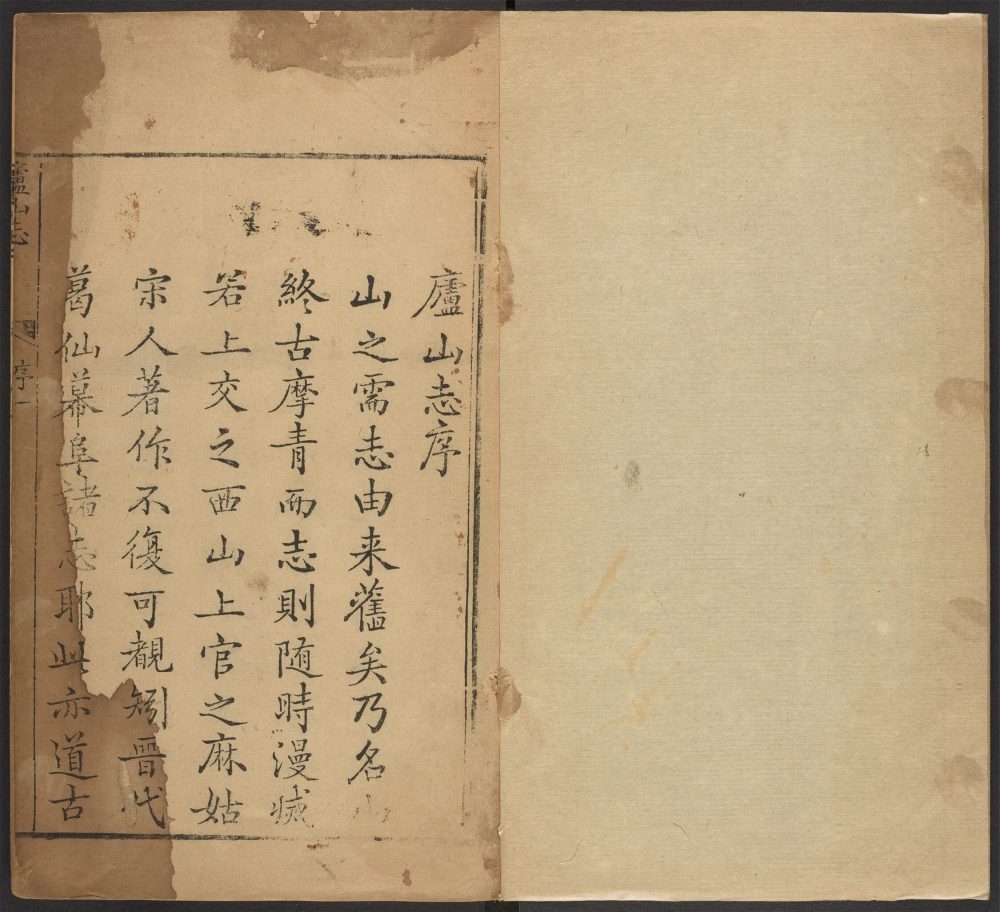 廬山志序
山之需志由来舊矣乃名山
終古摩青而志則随時漫滅
若上交之西山上官之麻姑
宗人著作不復可覩矧晋代
葛仙幕阜諸志耶此亦道古
廬山志
序一